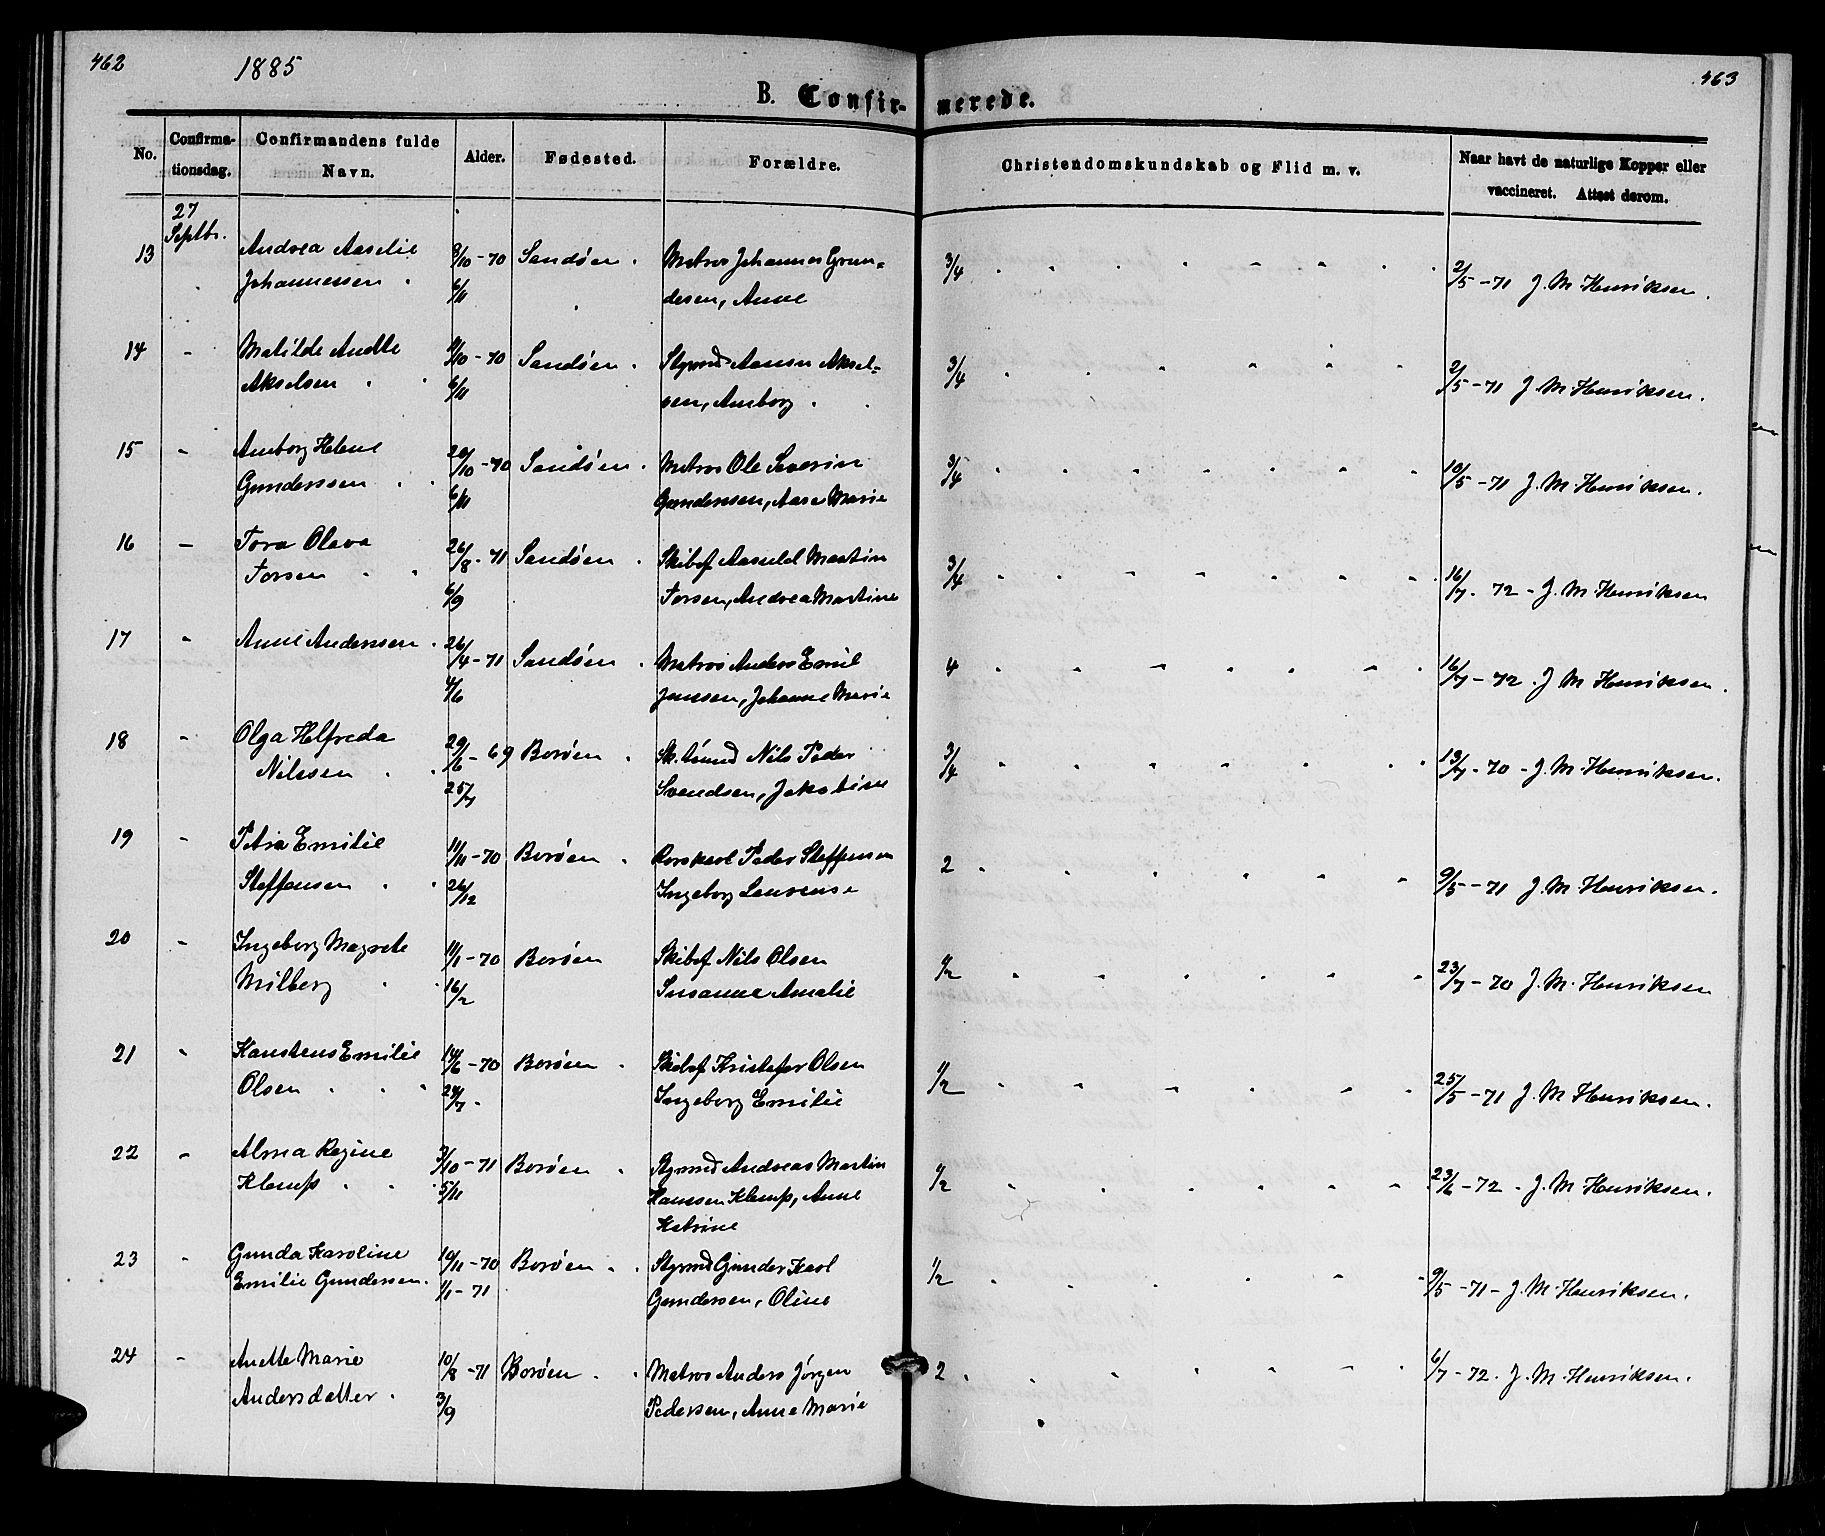 462
1885
B. Confir-
merede.
463
No.
Confirma-
tionsdag.
Confirmandens fulde
Navn.
Alder.
Fødested.
Forældre.
Christendomskundskab og Flid m. v.
Naar havt de naturlige Kopper eller
vaccineret. Attest derom.
27
Septbr.
13 Andrea Aaselie 8/10-70 Sandøen. Matros Johannes Grun- 3/4 2/5-71 J. M. Henriksen.
Johannessen. 6/11 desen, Anne
14 - Matilde Andtte 9/10-70 Sandøen. Styrmd Aanen Aksel- 3/4 2/5-71 J. M. Henriksen.
Akselsen 6/11 sen, Amborg.
15 - Amborg Helene 20/10-70 Sandøen. Matros Ole Severin 3/4 10/5-71 J. M. Henriksen.
Gunderssen 6/11 Gunderssen, Aase Marie
16 - Tora Olava 26/8-71 Sandøen. Skibsf Aasuld Martin 3/4 16/7-72 - J. M. Henriksen
Torsen 6/9 Torsen, Andrea Martine
17 - Anne Anderssen. 26/4-71 Sandøen. Matros Anders Emil 4 16/7-72. J M Henriksen.
4/6 Janssen, Johanne Marie
18 - Olga Helfreda 29/6-69 Borøen. Sk.tømmd Nils Peder 3/4 13/7-70 - J. M. Henriksen.
Nilssen 25/7 Svendsen, Jakobine
19 - Petra Emilie 11/11-70 Borøen. Rorskarl Peder Steffensen 2 9/5-71 J. M. Henriksen.
Steffensen 26/12 Ingeborg Laurense
20 - Ingeborg Magrete 11/1-70 Borøen Skibsf Nils Olsen 1/2 23/7-70 J. M. Henriksen
Milberg 16/2 Susanne Amalie
21 - Kanstens Emilie 14/6-70 Borøen. Skibsf Kristofer Olsen 1/2 25/5-71 J. M Henriksen.
Olsen 24/7. Ingeborg Emilie
22 - Alma Regine 3/10-71 Borøen. Styrmd Andreas Martin 1/2 23/6-72 - J. M. Henriksen.
Klemp 5/11 Hanssen Klemp, Anne
Katrine
23 - Gunda Karoline 19/11-70 Borøen. Styrmd Gunder Karl 1/2 9/5-71 - J. M. Henriksen.
Emilie Gunderssen. 1/1-71 Gunderssen, Oline
24 - Anette Marie 10/8-71 Borøen. Matros Anders Jørgen 2 6/7-72. J. M. Henriksen.
Andersdatter. 3/9 Pederssen, Anne Marie